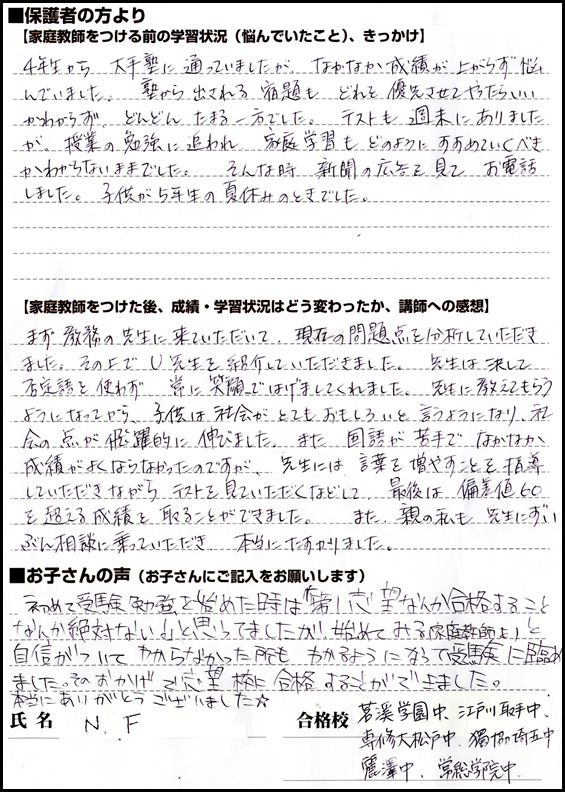 ■保護者の方より
【家庭教師をつける前の学習状況（悩んでいたこと）、きっかけ】
4年生から 大手塾に通っていましたが、なかなか成績が上がらず悩
んでいました。 塾から出される宿題も どれを優先させてやったらいい
かわからず、どんどん たまる一方でした。 テストも 週末にありました
が、授業の勉強に追われ 家庭学習も どのようにすすめていくべき
かわからないままでした。 そんな時 新聞の広告を見て お電話
しました。子供が5年生の夏休みのときでした。
【家庭教師をつけた後、成績・学習状況はどう変わったか、講師への感想】
まず教務の先生に来ていただいて、現在の問題点を分析していただき
ました。その上でU先生を紹介していただきました。 先生は決して
否定語を使わず 常に笑顔ではげましてくれました。先生に教えてもらう
ようになってから、子供は社会がとてもおもしろいと言うようになり、社
会の点が飛躍的に伸びました。また 国語が苦手で なかなか
成績がよくならなかったのですが、先生には 言葉を増やすことを指導
していただきながら テストを見ていただくなどして 最後は 偏差値60
を超える成績を取ることができました。 また、親の私も 先生にずい
ぶん相談に乗っていただき 本当にたすかりました。
■お子さんの声（お子さんにご記入をお願いします）
初めて受験勉強を始めた時は「第1志望なんか合格すること
なんか絶対ない。」と思ってましたが、始めてみる（家庭教師より）と
自信がついて わからなかった所も わかるようになって受験に臨め
ました。そのおかげで志望校に合格することができました。
本当にありがとうございました☆
氏名 N.F
合格校 茗溪学園中、江戸川取手中、
専修大松戸中、獨協埼玉中
麗澤中、常総学院中